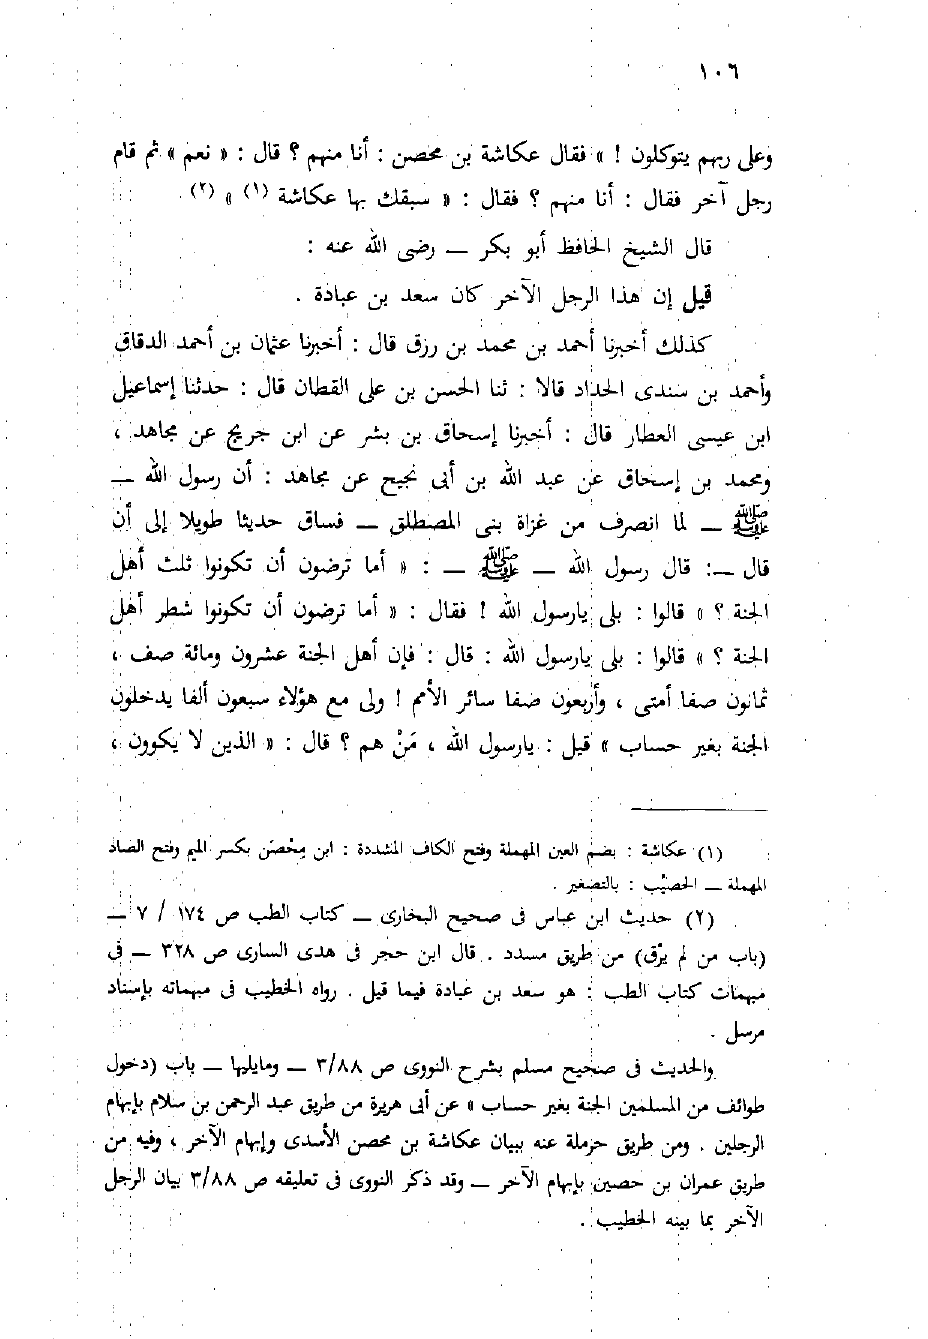 ١٠٦
وعلى ربهم يتوكلون ! » فقال عكاشة بن محصن : أنا منهم ؟ قال : « نعم » ثم قام
رجل آخر فقال : أنا منهم ؟ فقال : « سبقك بها عكاشة (١) » (٢) .
قال الشيخ الحافظ أبو بكر ــ رضى الله عنه :
قيل إن هذا الرجل الآخر كان سعد بن عبادة .
كذلك أخبرنا أحمد بن محمد بن رزق قال : أخبرنا عثمان بن أحمد الدقاق
وأحمد بن سندى الحداد قالا : ثنا الحسن بن على القطان قال : حدثنا إسماعيل
ابن عيسى العطار قال : أخبرنا إسحاق بن بشر عن ابن جريج عن مجاهد ،
ومحمد بن إسحاق عن عبد الله بن أبى نجيح عن مجاهد : أن رسول الله ــ
ﷺ ــ لما انصرف من غزاة بنى المصطلق ــ فساق حديثا طويلا إلى أن
قال ــ: قال رسول الله ــ ﷺ ــ : « أما ترضون أن تكونوا ثلث أهل
الجنة ؟ » قالوا : بلى يارسول الله ! فقال : « أما ترضون أن تكونوا شطر أهل
الجنة ؟ » قالوا : بلى يارسول الله : قال : فإن أهل الجنة عشرون ومائة صف ،
ثمانون صفا أمتى ، وأربعون صفا سائر الأمم ! ولى مع هؤلاء سبعون ألفا يدخلون
الجنة بغير حساب » قيل : يارسول الله ، مَنْ هم ؟ قال : « الذين لا يكوون ،
(١) عكاشة : بضم العين المهملة وفتح الكاف المشددة : ابن مِحْصَن بكسر الميم وفتح الصاد
المهملة ــ الحصيّب : بالتصغير .
(٢) حديث ابن عباس فى صحيح البخارى ــ كتاب الطب ص ١٧٤ / ٧ ــ
(باب من لم يرْق) من طريق مسدد . قال ابن حجر فى هدى السارى ص ٣٢٨ ــ فى
مبهمات كتاب الطب : هو سعد بن عبادة فيما قيل . رواه الخطيب فى مبهماته بإسناد
مرسل .
والحديث فى صحيح مسلم بشرح النووى ص ٣/٨٨ ــ ومايليها ــ باب (دخول
طوائف من المسلمين الجنة بغير حساب » عن أبى هريرة من طريق عبد الرحمن بن سلام بإبهام
الرجلين . ومن طريق حرملة عنه ببيان عكاشة بن محصن الأسدى وإبهام الآخر ، وفيه من
طريق عمران بن حصين بإبهام الآخر ــ وقد ذكر النووى فى تعليقه ص ٣/٨٨ بيان الرجل
الآخر بما بينه الخطيب .